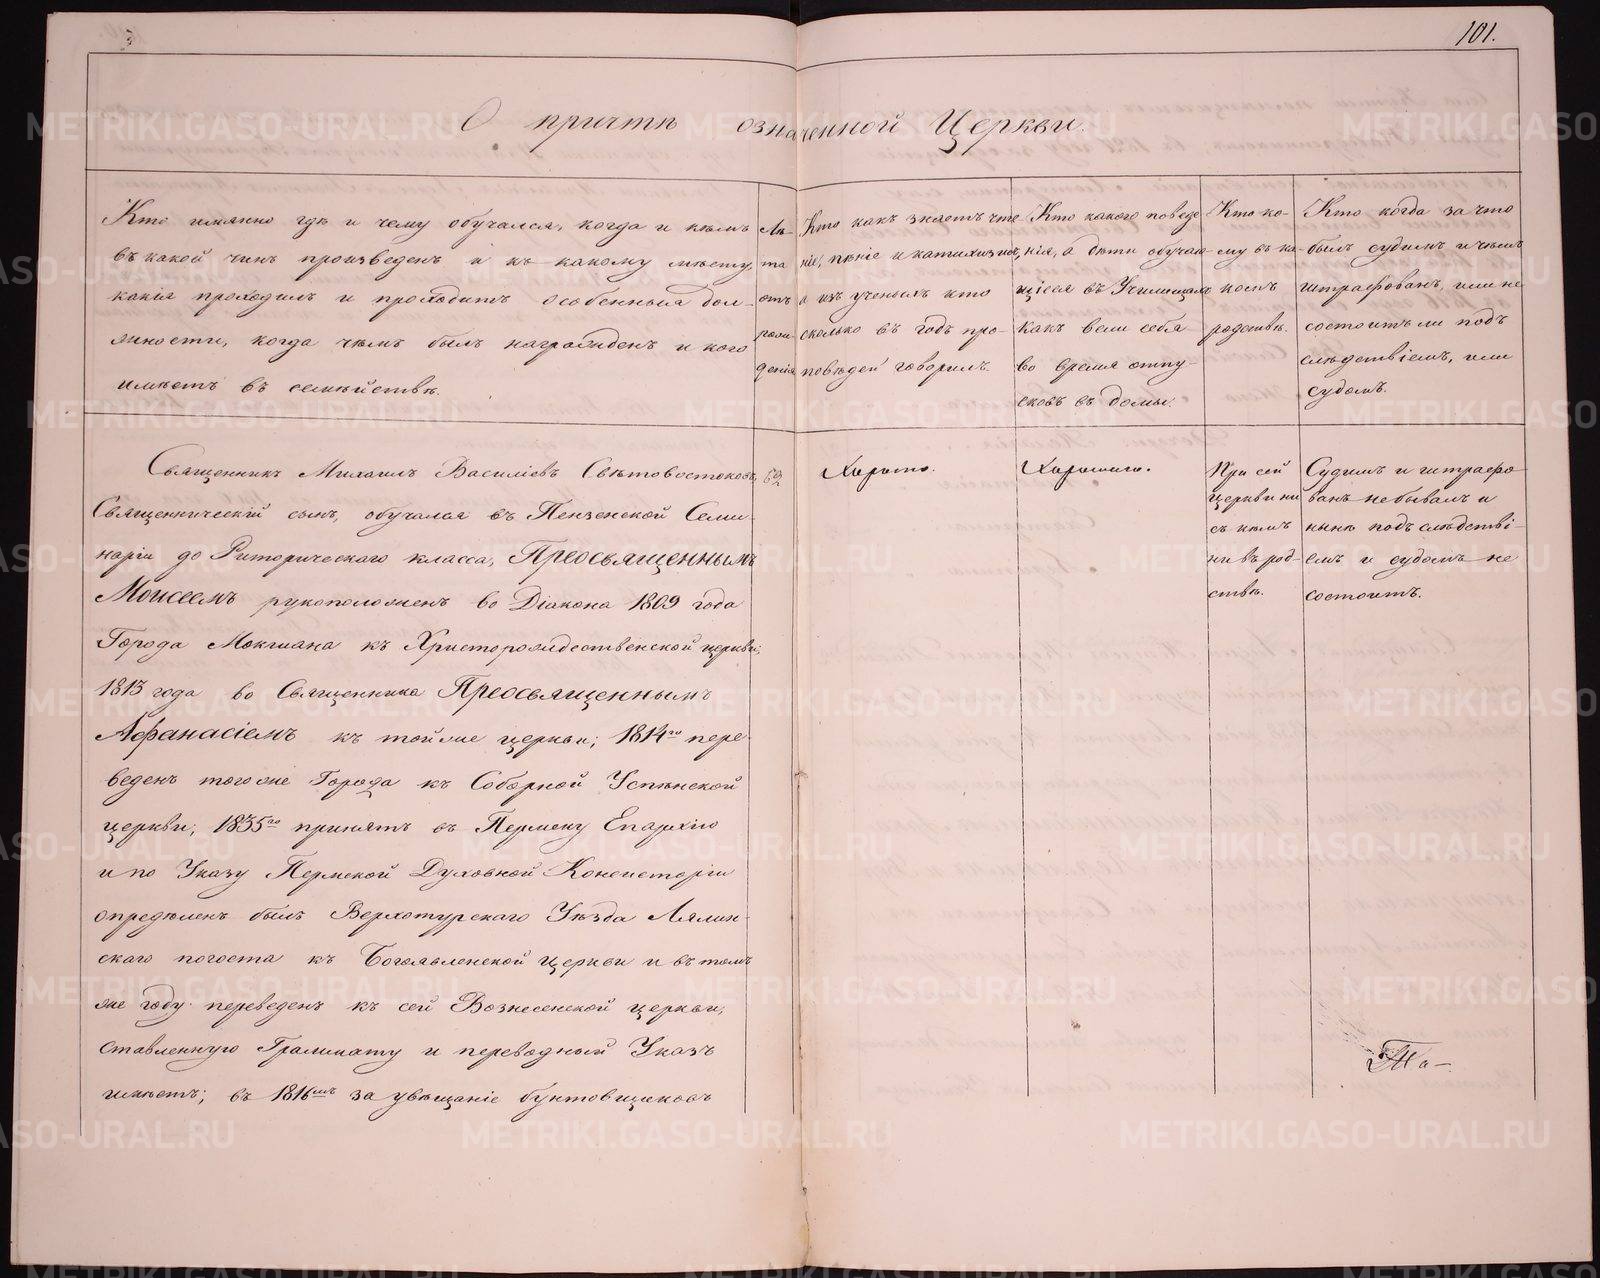 101.
О причтѣ означенной Церкви.
Кто имянно гдѣ и чему обучался, когда и кѣмъ
въ какой чинъ произведенъ и къ какому мѣсту,
какія проходилъ и проходитъ особенныя дол-
жности, когда чѣмъ былъ награжденъ и кого
имѣетъ въ семѣйствѣ.
Лѣ-
та
отъ
рож-
денія
Кто какъ знаетъ чте
ніе, пѣніе и катихизисъ,
а изъ ученыхъ кто
сколько въ годъ про-
повѣдей говорилъ.
Кто какого поведе
нія, а дѣти обучаю
щіеся въ Училищахъ
какъ вели себя
во время отпу-
сковъ въ домы.
Кто ко-
му въ ка-
комъ
родствѣ.
Кто когда за что
былъ судимъ и чѣмъ
штрафованъ, или не
состоитъ ли подъ
слѣдствіемъ, или
судомъ.
Священникъ Михаилъ Василіевъ Свѣтовостоковъ,
Священническій сынъ, обучался въ Пензенской Семи-
наріи до Риторическаго класса, Преосвященнымъ
Моисеемъ рукоположенъ во Діакона 1809 года
Города Мокшана къ Христорождественской церкви;
1813 года во Священника Преосвященнымъ
Афанасіемъ къ той же церкви; 1814го пере-
веденъ того же Города къ Соборной Успѣнской
церкви; 1835го принятъ въ Пермску Епархію
и по Указу Пермской Духовной Консисторіи
опредѣленъ былъ Верхотурскаго Уѣзда Лялин-
скаго погоста къ Богоявленской церкви и въ томъ
же году переведенъ къ сей Вознесенской церкви,
ставленную Граммату и переводный Указъ
имѣетъ; въ 1816мъ за увѣщаніе бунтовщиковъ
Хорошо.
Хорошаго.
При сей
церкви ни
съ кѣмъ
ни въ род-
ствѣ.
Судимъ и штрафо
ванъ не бывалъ и
нынѣ подъ слѣдстві-
емъ и судомъ не
состоитъ.
METRIKI.GASO-URAL.RU